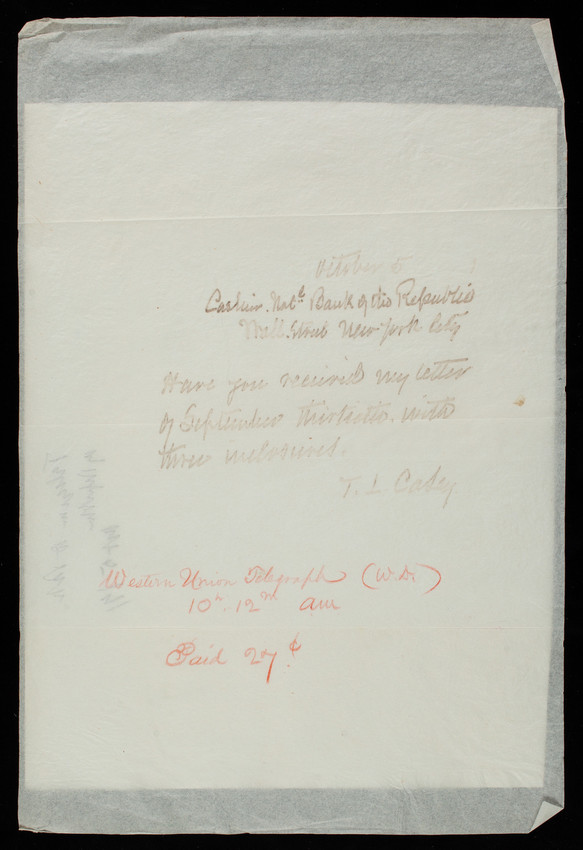 October 5
Cashier. Natl. Bank of the Republic
Wall. Street New York City
Have you received my letter
of September thirtieth. with
three inclosures.
T. L. Casey
Western Union Telegraph (W.D.)
10h. 12m am
Paid 27¢